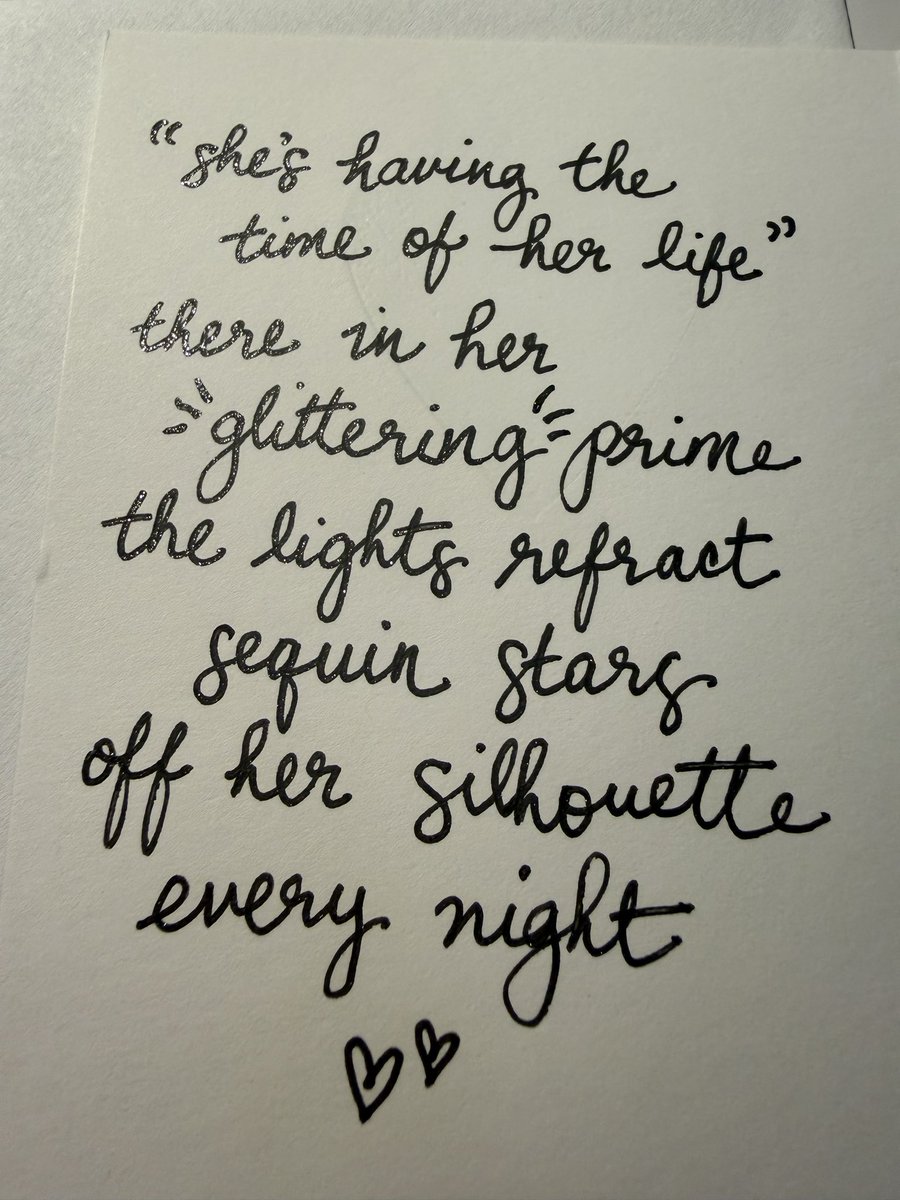 “she's having the
time of her life”
there in her
glittering prime
the lights refract
sequin stars
off her silhouette
every night